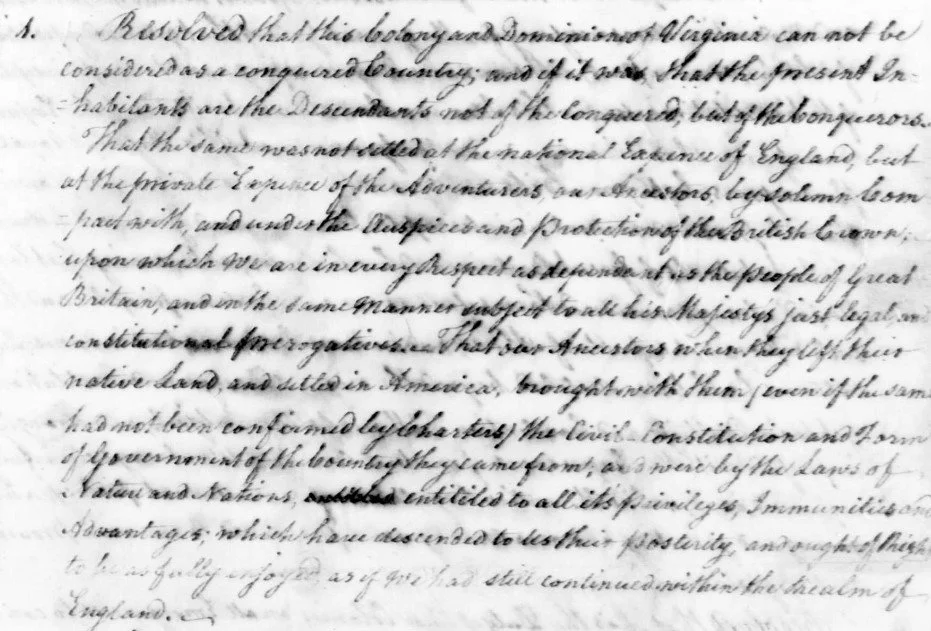 1. Resolved that this Colony and Dominion of Virginia can not be
considered as a conquered Country; and if it was, that the present In-
=habitants are the Descendants not of the Conquered, but of the Conquerors.
That the same was not setled at the national Expence of England, but
at the private Expence of the Adventurers, our Ancestors, by solemn Com
=pact with, and under the Auspices and Protection of the British Crown;
upon which we are in every Respect as dependant as the People of Great
Britain, and in the same Manner subject to all his Majesty's just, legal, and
constitutional Prerogatives. That our Ancestors, when they left their
native Land, and setled in America, brought with them (even if the same
had not been confirmed by Charters) the Civil-Constitution and Form
of Government of the Country they came from; and were by the Laws of
Nature and Nations, entitiled to all it's Privileges, Immunities and
Advantages; which have descended to us their Posterity, and ought of Right
to be as fully enjoyed, as if we had still continued within the Realm of
England.